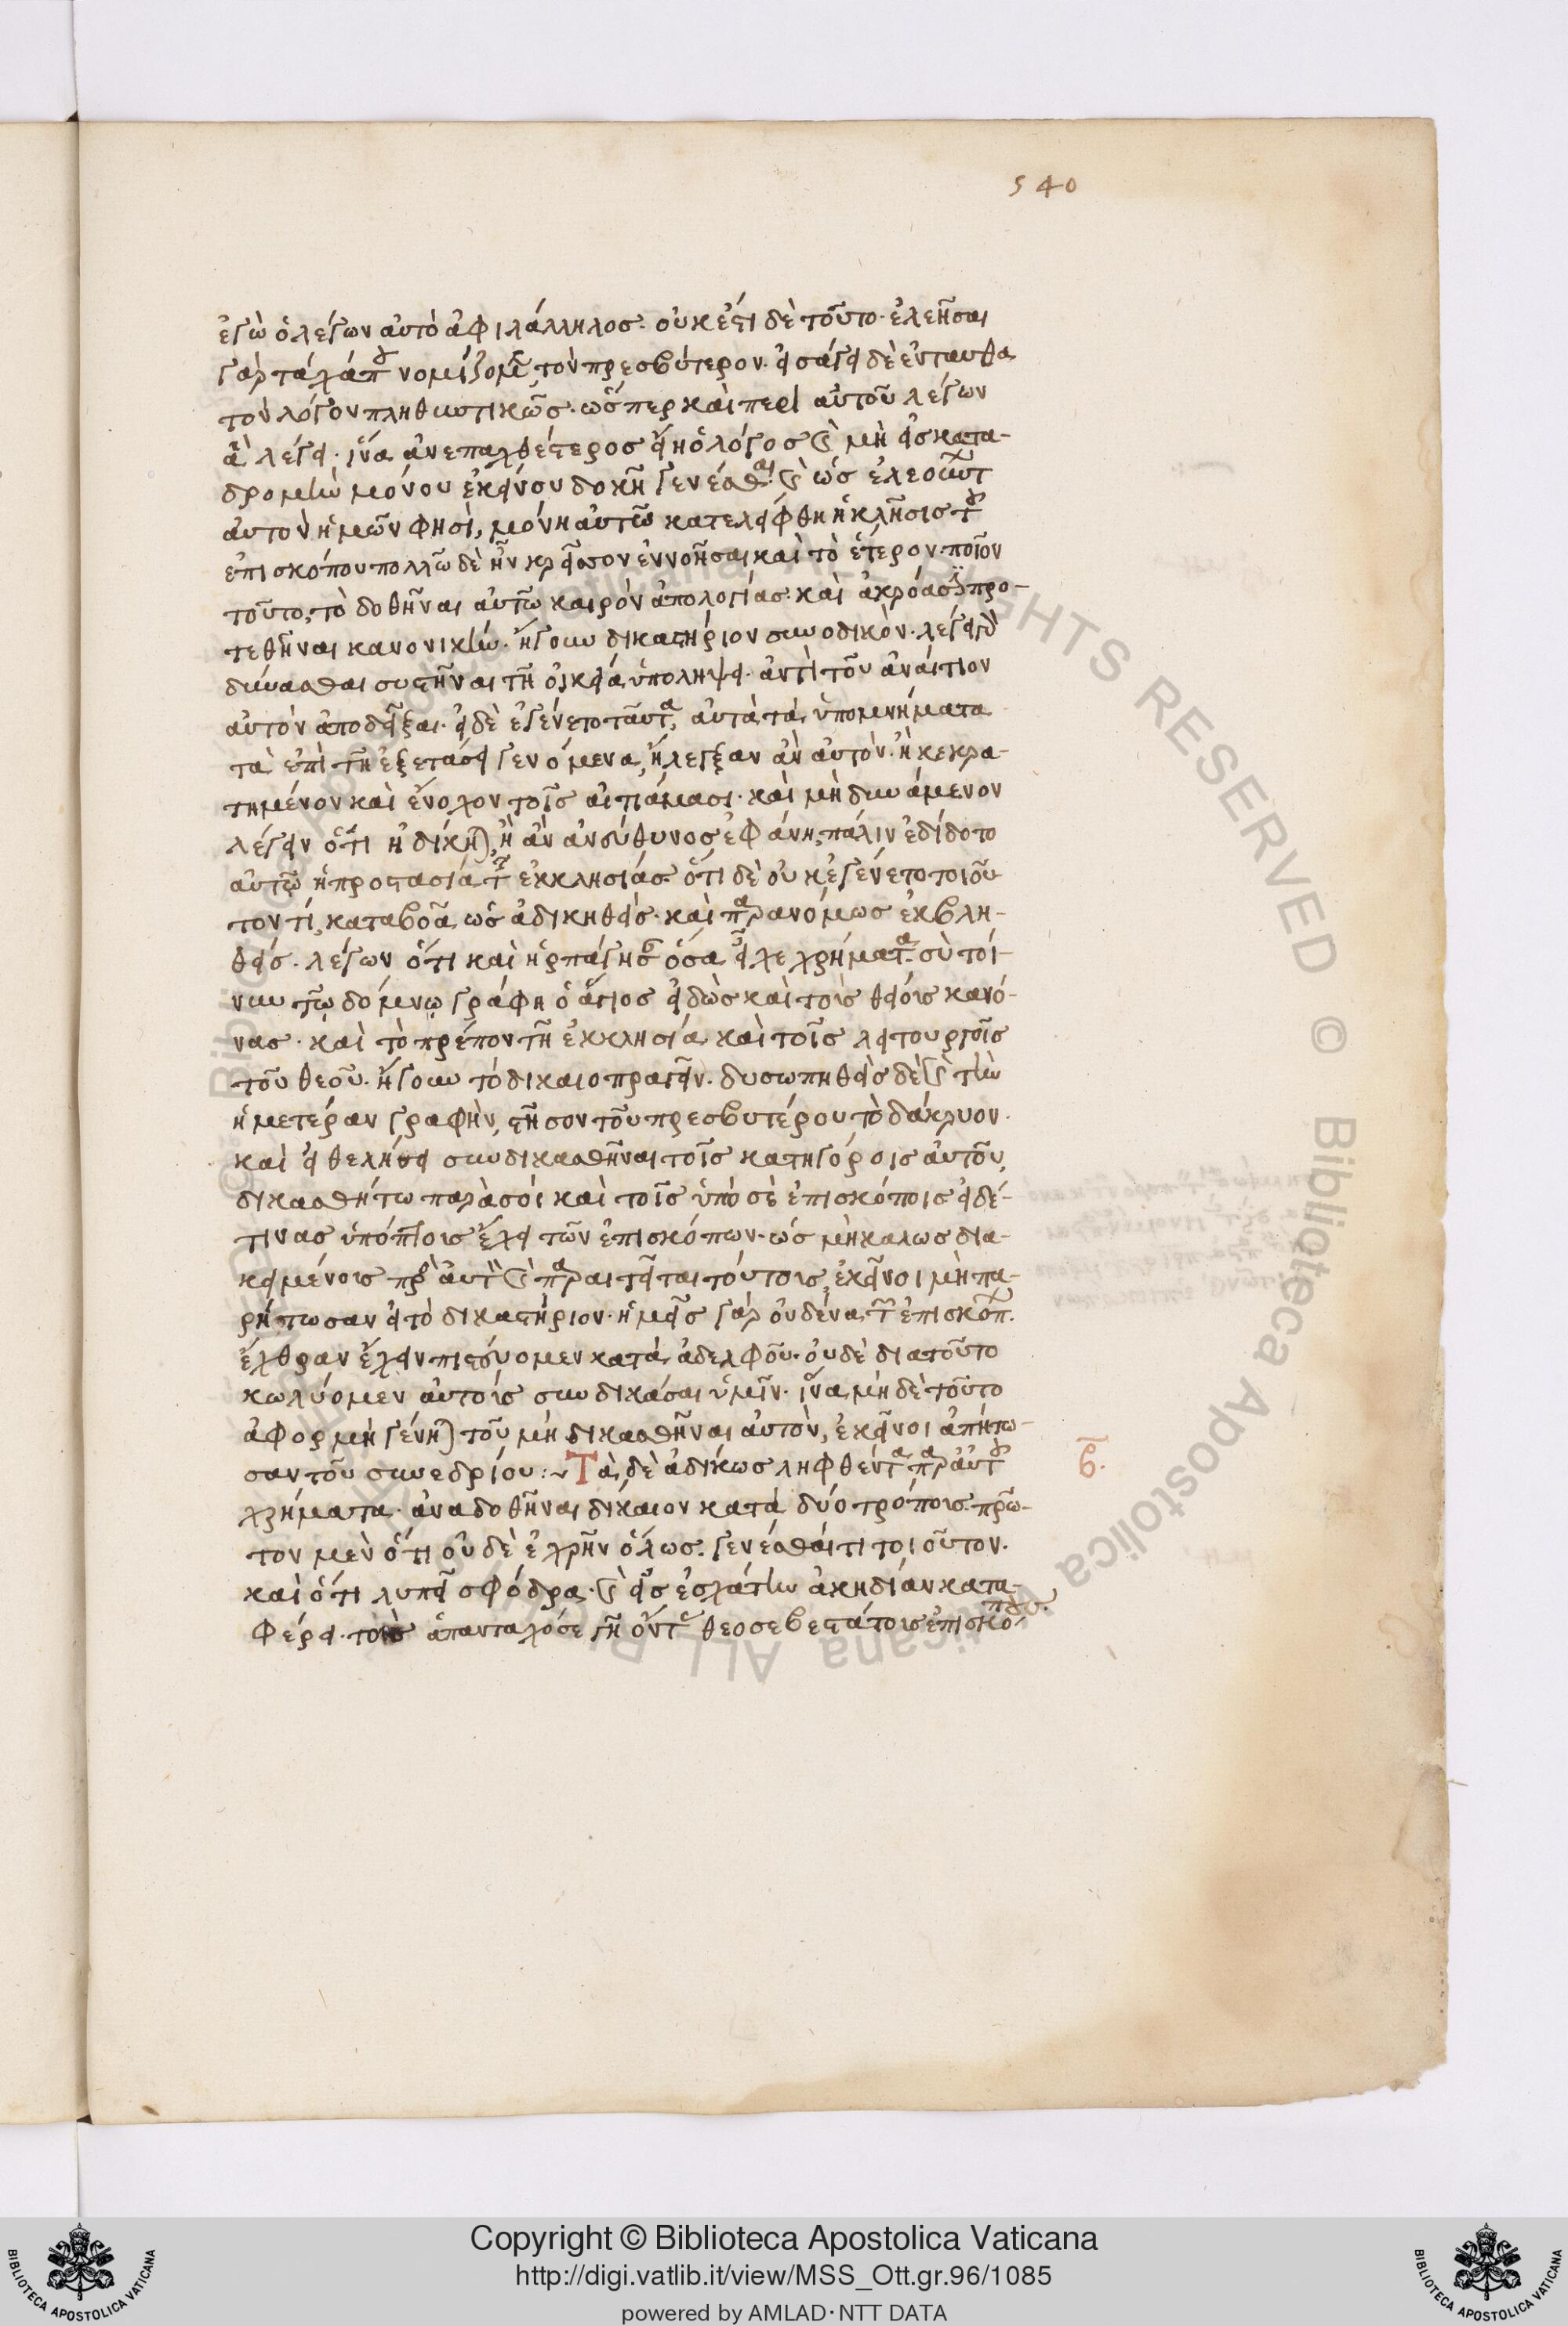 540
ἐγὼ ὁ λέγων αὐτὸ ἀφιλάλληλος. οὐκ ἔστι δὲ τοῦτο. ἐλεῆσαι
γὰρ νομίζομεν τὸν πρεσβύτερον. εἰσάγει δὲ ἐνταυθα
τὸν λόγον πληθυντικῶς. ὥσπερ καὶ περὶ αὐτοῦ λέγων
ἃ λέγει. ἵνα ἀνεπαχθέστερος εἴη ὁ λόγος καὶ μὴ εἰς κατα-
δρομὴν μόνου ἐκείνου δοκῆ γενέσθαι. καὶ ὡς ἐλεοῦντ
αὐτον ἡμῶν φησὶ, μόνη αὐτῶ κατελείφθη ἡ κλῆσις τοῦ
ἐπισκόπου πολλῶ δὲ ἦν κρεῖσσον ἐννοῆσαι καὶ τὸ ἕτερον. ποῖον
τοῦτο, τὸ δοθῆναι αὐτῶ καιρὸν ἀπολογίας. καὶ ἀκρόασιν προ-
τεθῆναι κανονικὴν. ἤγουν δικαστήριον συνοδικὸν. λέγει
δύνασθαι συστῆναι τῆ οἰκεία ὑπολήψει. ἀντὶ τοῦ ἀναίτιον
αὐτὸν ἀποδεῖξαι. εἰ δὲ ἐγένετο ταῦτα, αὐτὰ τὰ ὑπομνήματα
τὰ ἐπὶ τῆ ἐξετάσει γενόμενα, ἤλεγξαν ἂν αὐτὸν. ἢ κεκρα-
τημένον καὶ ἔνοχον τοῖς αἰτιάμασι. καὶ μὴ δυνάμενον
λέγειν ὅτι ἠδίκηται, ἢ ἂν ἀνεύθυνος ἐφάνη, πάλιν ἐδίδοτο
αὐτῶ ἡ προστασία τῆς ἐκκλησίας. ὅτι δὲ οὐκ ἐγένετο τοιοῦ
τον τί, καταβοᾶ ὡς ἀδικηθείς. καὶ παρανόμως ἐκβλη-
θείς. λέγων ὅτι καὶ ἡρπάγησαν ὅσα εἶχε χρήματα. σὺ τοί-
νυν τῶ δόμνω γράφη ὁ ἅγιος εἰδὼς καὶ τοὺς θείους κανό-
νας. καὶ τὸ πρέπον τῆ ἐκκλησία καὶ τοῖς λειτουργοῖς
τοῦ θεοῦ. ἤγουν τὸ δικαιοπραγεῖν. δυσωπηθεὶς δὲ καὶ τὴν
ἡμετέραν γραφὴν, στῆσον τοῦ πρεσβυτέρου τὸ δάκρυον.
καὶ εἰ θελήσει συνδικασθῆναι τοῖς κατηγόροις αὐτοῦ,
δικασθήτω παρὰ σοὶ καὶ τοῖς ὑπό σὲ ἐπισκόποις εἰ δέ-
τινας ὑπόπτους ἔχει τῶν ἐπισκόπων. ὡς μὴ καλως δια-
κειμένους πρὸς αὐτὸν καὶ παραιτεῖται τούτους, ἐκεῖνοι μὴ πα-
ρήτωσαν εἰ τὸ δικαστήριον. ἡμεῖς γὰρ οὐδένα τῶν ἐπισκόπ.
ἔχθραν ἔχειν πιστεύομεν κατὰ ἀδελφοῦ. οὐδὲ διατοῦτο
κωλύομεν αὐτοὺς συνδικάσαι ὑμῖν. ἵνα μὴ δὲ τοῦτο
ἀφορμὴ γένηται τοῦ μὴ δικασθῆναι αὐτὸν, ἐκεῖνοι ἀπήτω-
σαν τοῦ συνεδρίου:~ Τὰ δὲ ἀδίκως ληφθέντα παρ αὐτοῦ
β.
χρήματα. ἀναδοθῆναι δίκαιον κατὰ δύο τρόπους. πρῶ-
τον μὲν ὅτι οὐ δὲ ἐχρῆν ὅλως. γενέσθαί τι τοιοῦτον.
καὶ ὅτι λυπεῖ σφόδρα. καὶ εἰς ἐσχάτην ἀκηδίαν κατα-
φέρει. τοὺς ἁπανταχόσε γῆ ὄντας θεοσεβεστάτους ἐπισκό
πους.
Copyright © Biblioteca Apostolica Vaticana
http://digi.vatlib.it/view/MSS_Ott.gr.96/1085
powered by AMLAD · NTT DATA
BIBLIOTECA APOSTOLICA VATICANA
BIBLIOTECA APOSTOLICA VATICANA